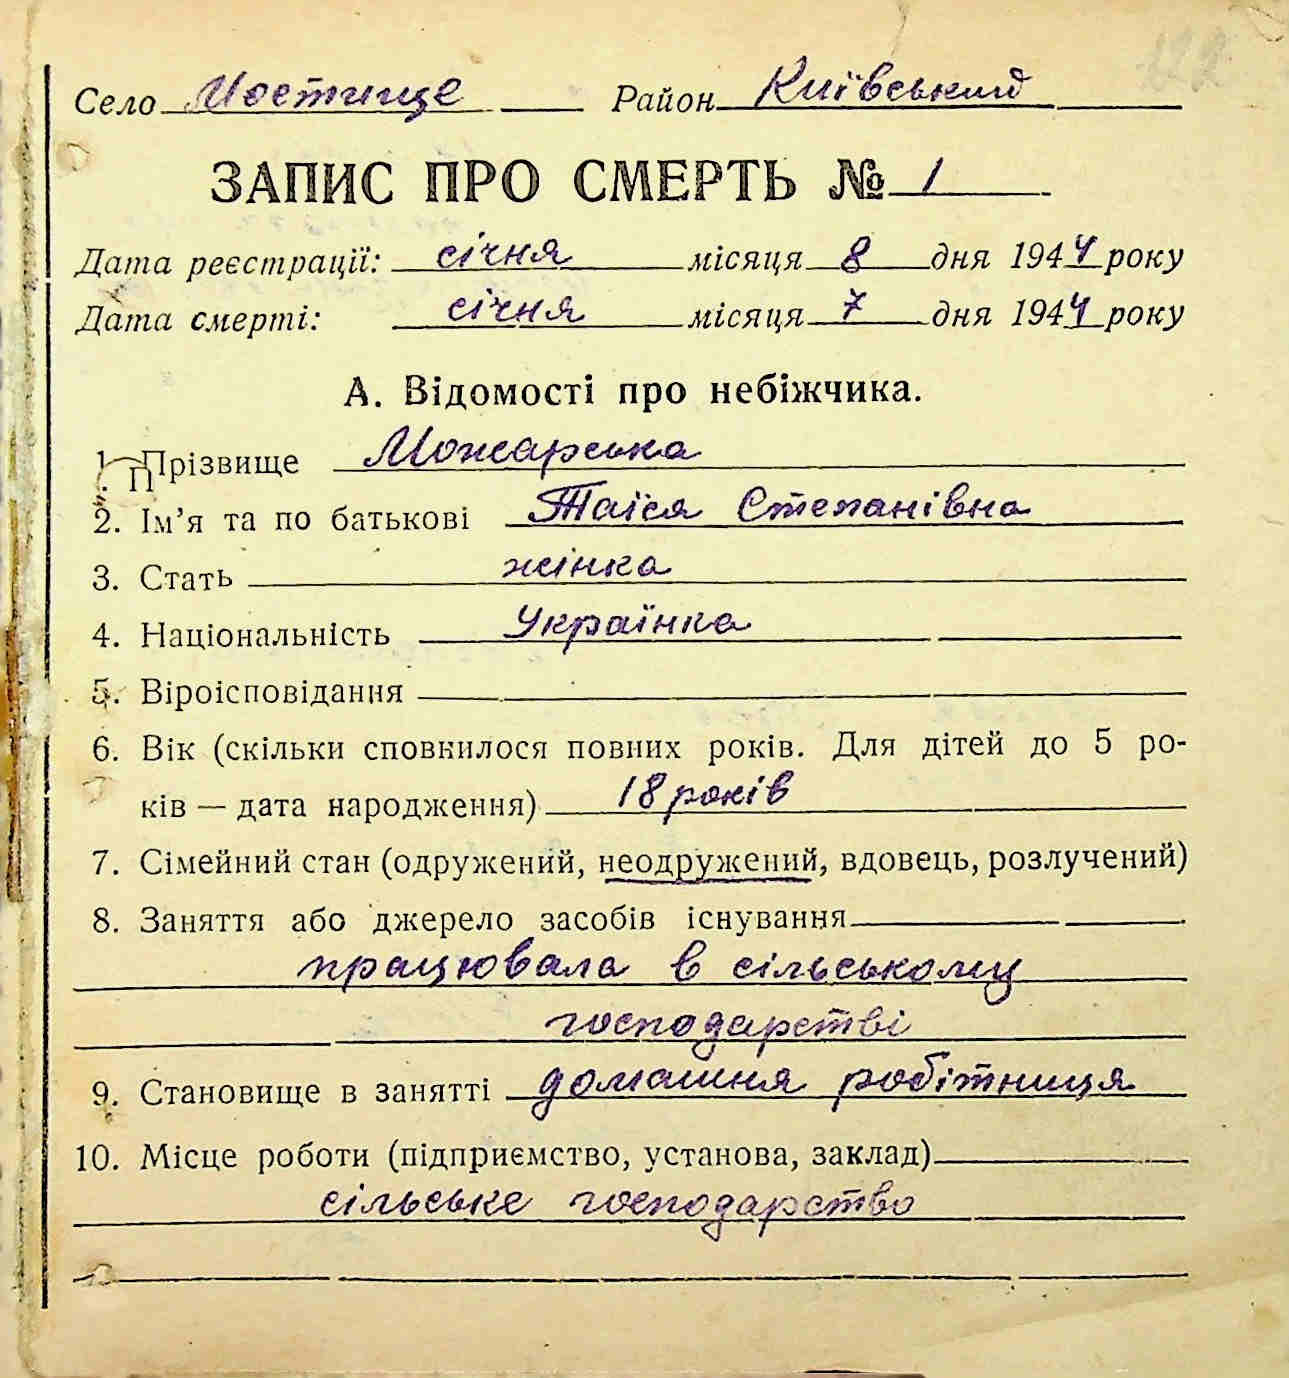 122
Село Мостище Район Київський
ЗАПИС ПРО СМЕРТЬ № 1
Дата реєстрації: січня місяця 8 дня 1944 року
Дата смерті: січня місяця 7 дня 1944 року
А. Відомості про небіжчика.
1. Прізвище Можарська
2. Ім’я та по батькові Таїся Степанівна
3. Стать жінка
4. Національність Українка
5. Віроісповідання
6. Вік (скільки сповнилося повних років. Для дітей до 5 ро-
ків — дата народження) 18 років
7. Сімейний стан (одружений, неодружений, вдовець, розлучений)
8. Заняття або джерело засобів існування
працювала в сільському
господарстві
9. Становище в занятті домашня робітниця
10. Місце роботи (підприємство, установа, заклад)
сільське господарство